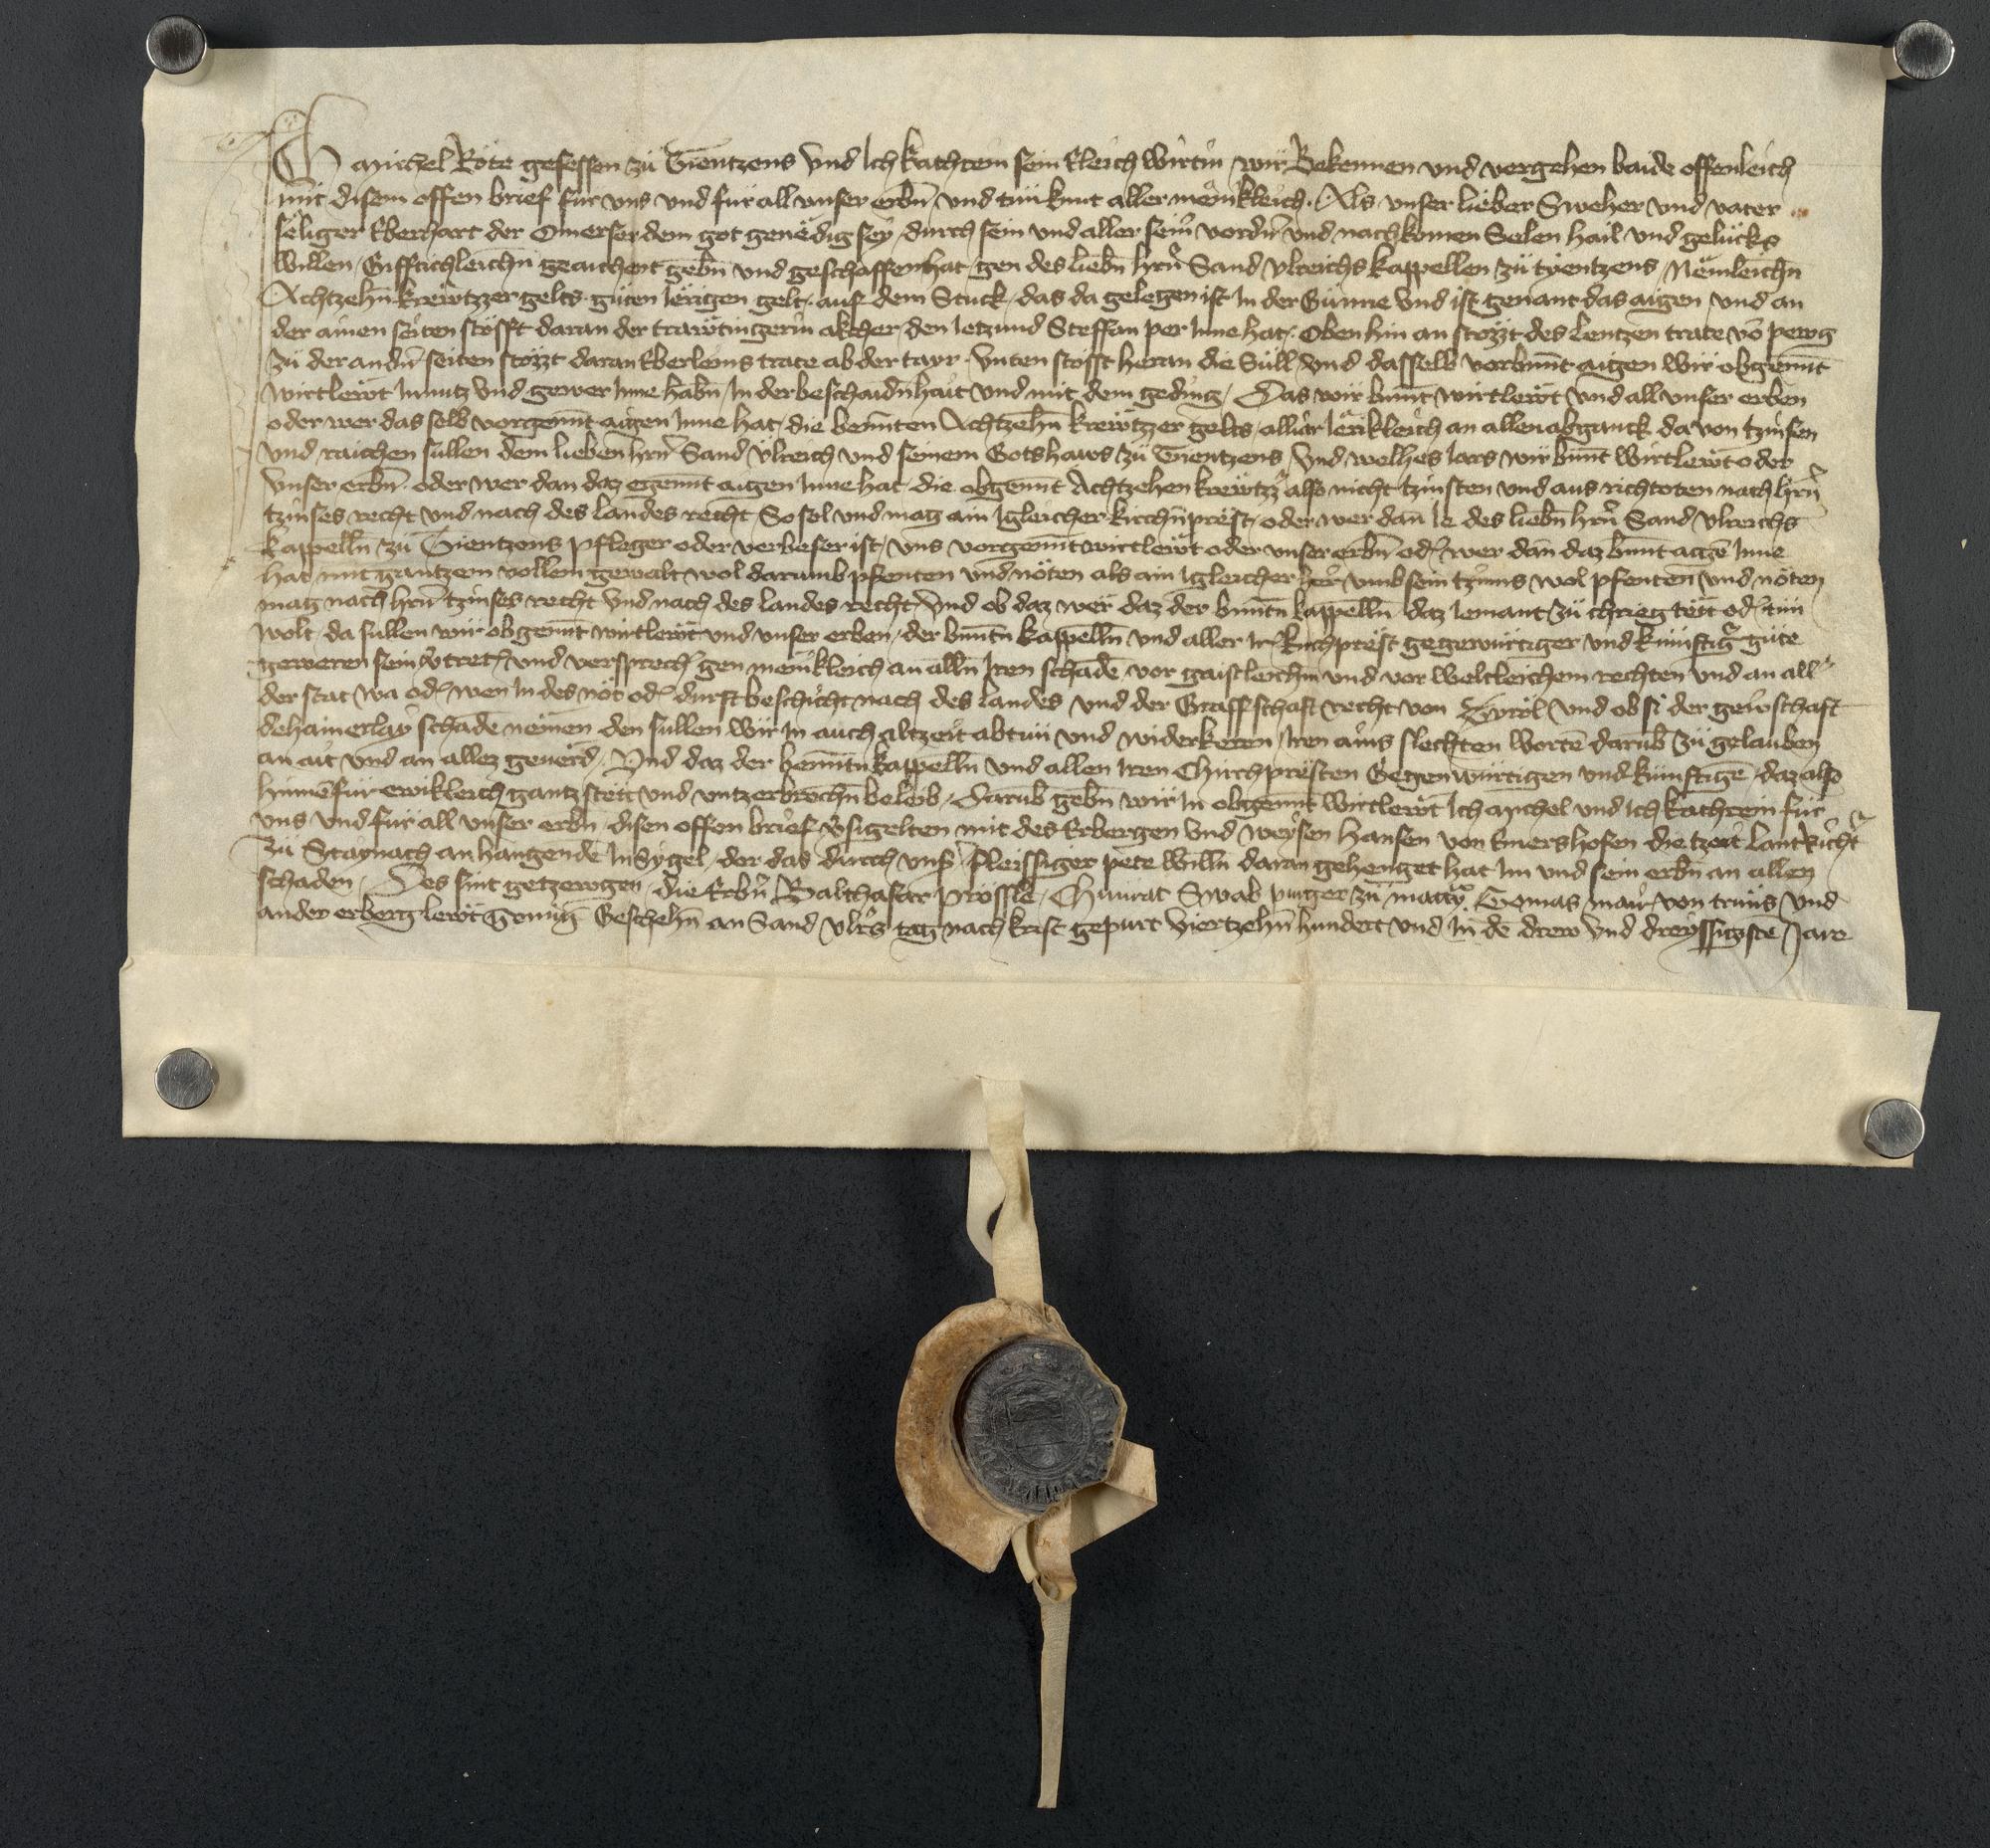 Ich Michel Röte gesessen zü Trientzens Vnd Ich kathrein sein Eleich Wirtin / wir Bekennen vnd vergehen baide offenleich
mit disem offen brief für vns vnd für all vnser erbn̄ vnd tün kunt aller menikleich. Als vnser lieber Sweher vnd vater
seliger Eberhart der Omerser dem got genedig sey / durch sein vnd aller seinˀ vordˀn̄ vnd nachkomen Selen hail vnd gelücks
willen / Gifftichleichn̄ geaichent gebn̄ vnd geschaffen hat / gen des liebn̄ hrn̄ Sand Vlreichs kappellen zü trientzens / Nemleichn̄
Achtzehn̄ krewtzzer gelts güten Ierigen gelt / auf dem Stuck / das da gelegen ist In der Günne Vnd ist genant das aigen vnd an
der ainen seiten stösst daran der trawtingerin akcher / den Ietzund Steffan per Inne hat / Oben hin an stozzt des Lentzen trate vō perg
zü der andn̄ seiten stözzt daran Eberleins trate ab der tayr / Vnten stosst heran die Süll Vnd dasselb vorbn̄nt aigen wir obgenn̄t
wirtlewt In nutz Vnd gewer Inne habn̄ / In der beschaidn̄hait vnd mit dem geding / Das wir bn̄nt wirtlewt Vnd all vnser erben
oder wer das selb vorgenn̄t aigen Inne hat / die benn̄ten Achtzehn̄ krewtzzer gelts / alliar Ierikleich an allen abganck da von tzinsen
vnd raichen süllen dem lieben hrn̄ Sand Vlreich vnd seinem Gotshaws zü Trientzens / Vnd welhes Iars wir bn̄nt wirtlewt oder
Vnser erbn̄ oder wer dan daz egenn̄t aigen Inne hat / die obgenn̄t Achtzehen krewtzzˀ also nicht tzinsten vnd aus richtoten nach hrn̄
tzinses recht vnd nach des landes recht / So sol vnd mag ain Igleicher kirchn̄prest / oder wer dan̄ Ie des liebn̄ hrn̄ Sand Vlreichs
kappelln̄ zü Trientzens pfleger oder verbeser ist / vns vorgenn̄t wirtlewt oder vnser erbn̄ odˀ wer dan̄ daz bn̄nt aigē Inne
hat mit gantzem vollem gewalt wol darumb pfenten vnd nöten als ain Igleicher herˀ vmb sein tzinns wol pfenten vnd nöten
mag nach hrn̄ tzinses recht vnd nach des landes recht / Vnd ob daz wer daz der bn̄ntn̄ kappelln̄ daz Iemant zü chrieg tett odˀ tün
wolt / da sullen wir obgenn̄t wirtlewt vnd vnser erben / der bn̄ntn̄ kappelln̄ vnd aller Irˀ kirchprest gegewürtiger vnd künftigˀ güte
geweren sein v̄tretˀ vnd versprechˀ gen menikleich an alln̄ Iren schadē / vor gaistleichm̄ vnd vor weltleichem rechten vnd an allˀ
der stat wa odˀ wen In des nöt odˀ durft beschicht nach des landes vnd der Graffschaft recht von Tyröl Vnd ob si der gewschaft
dehainerlay schadē nemen den sullen wir In auch altzeit abtün vnd widerkeren / Iren ains slechten wortē darūb zü gelauben
an ait vnd an allez geuerd / Vnd daz der benn̄tn̄ kappelln̄ vnd allen Iren Chirchpresten Gegenwürtigen vnd künftigē / daz also
hinnēfür ewikleich gantz stett vnd vntzerbrochn̄ beleib / Darūb gebn̄ wir In obgenn̄t wirtlewt Ich Michel vnd Ich kathrein für
vns vnd für all vnser erbn̄ / disen offen brief v̄sigelten mit des Erbergen Vnd weysen Hansen von Emershofen die tzeit lantrichtˀ
zü Staynach an hangendē Insygel / der das durch vnsˀ fleissiger pete willn̄ daran gehenget hat Im vnd sein erbn̄ an allen
schaden / Des sint getzewgen / die Erbn̄ Balthasar Prössle / Chunrat Swab purger zü Matrˀ / Tomas mair von trüns Vnd
ander erberg lewt genüg Geschehn̄ an Sand Vlrˀs tag nach krist gepurt Viertzehn̄ hundert vnd In dē drew vnd dreyssigistē Jare